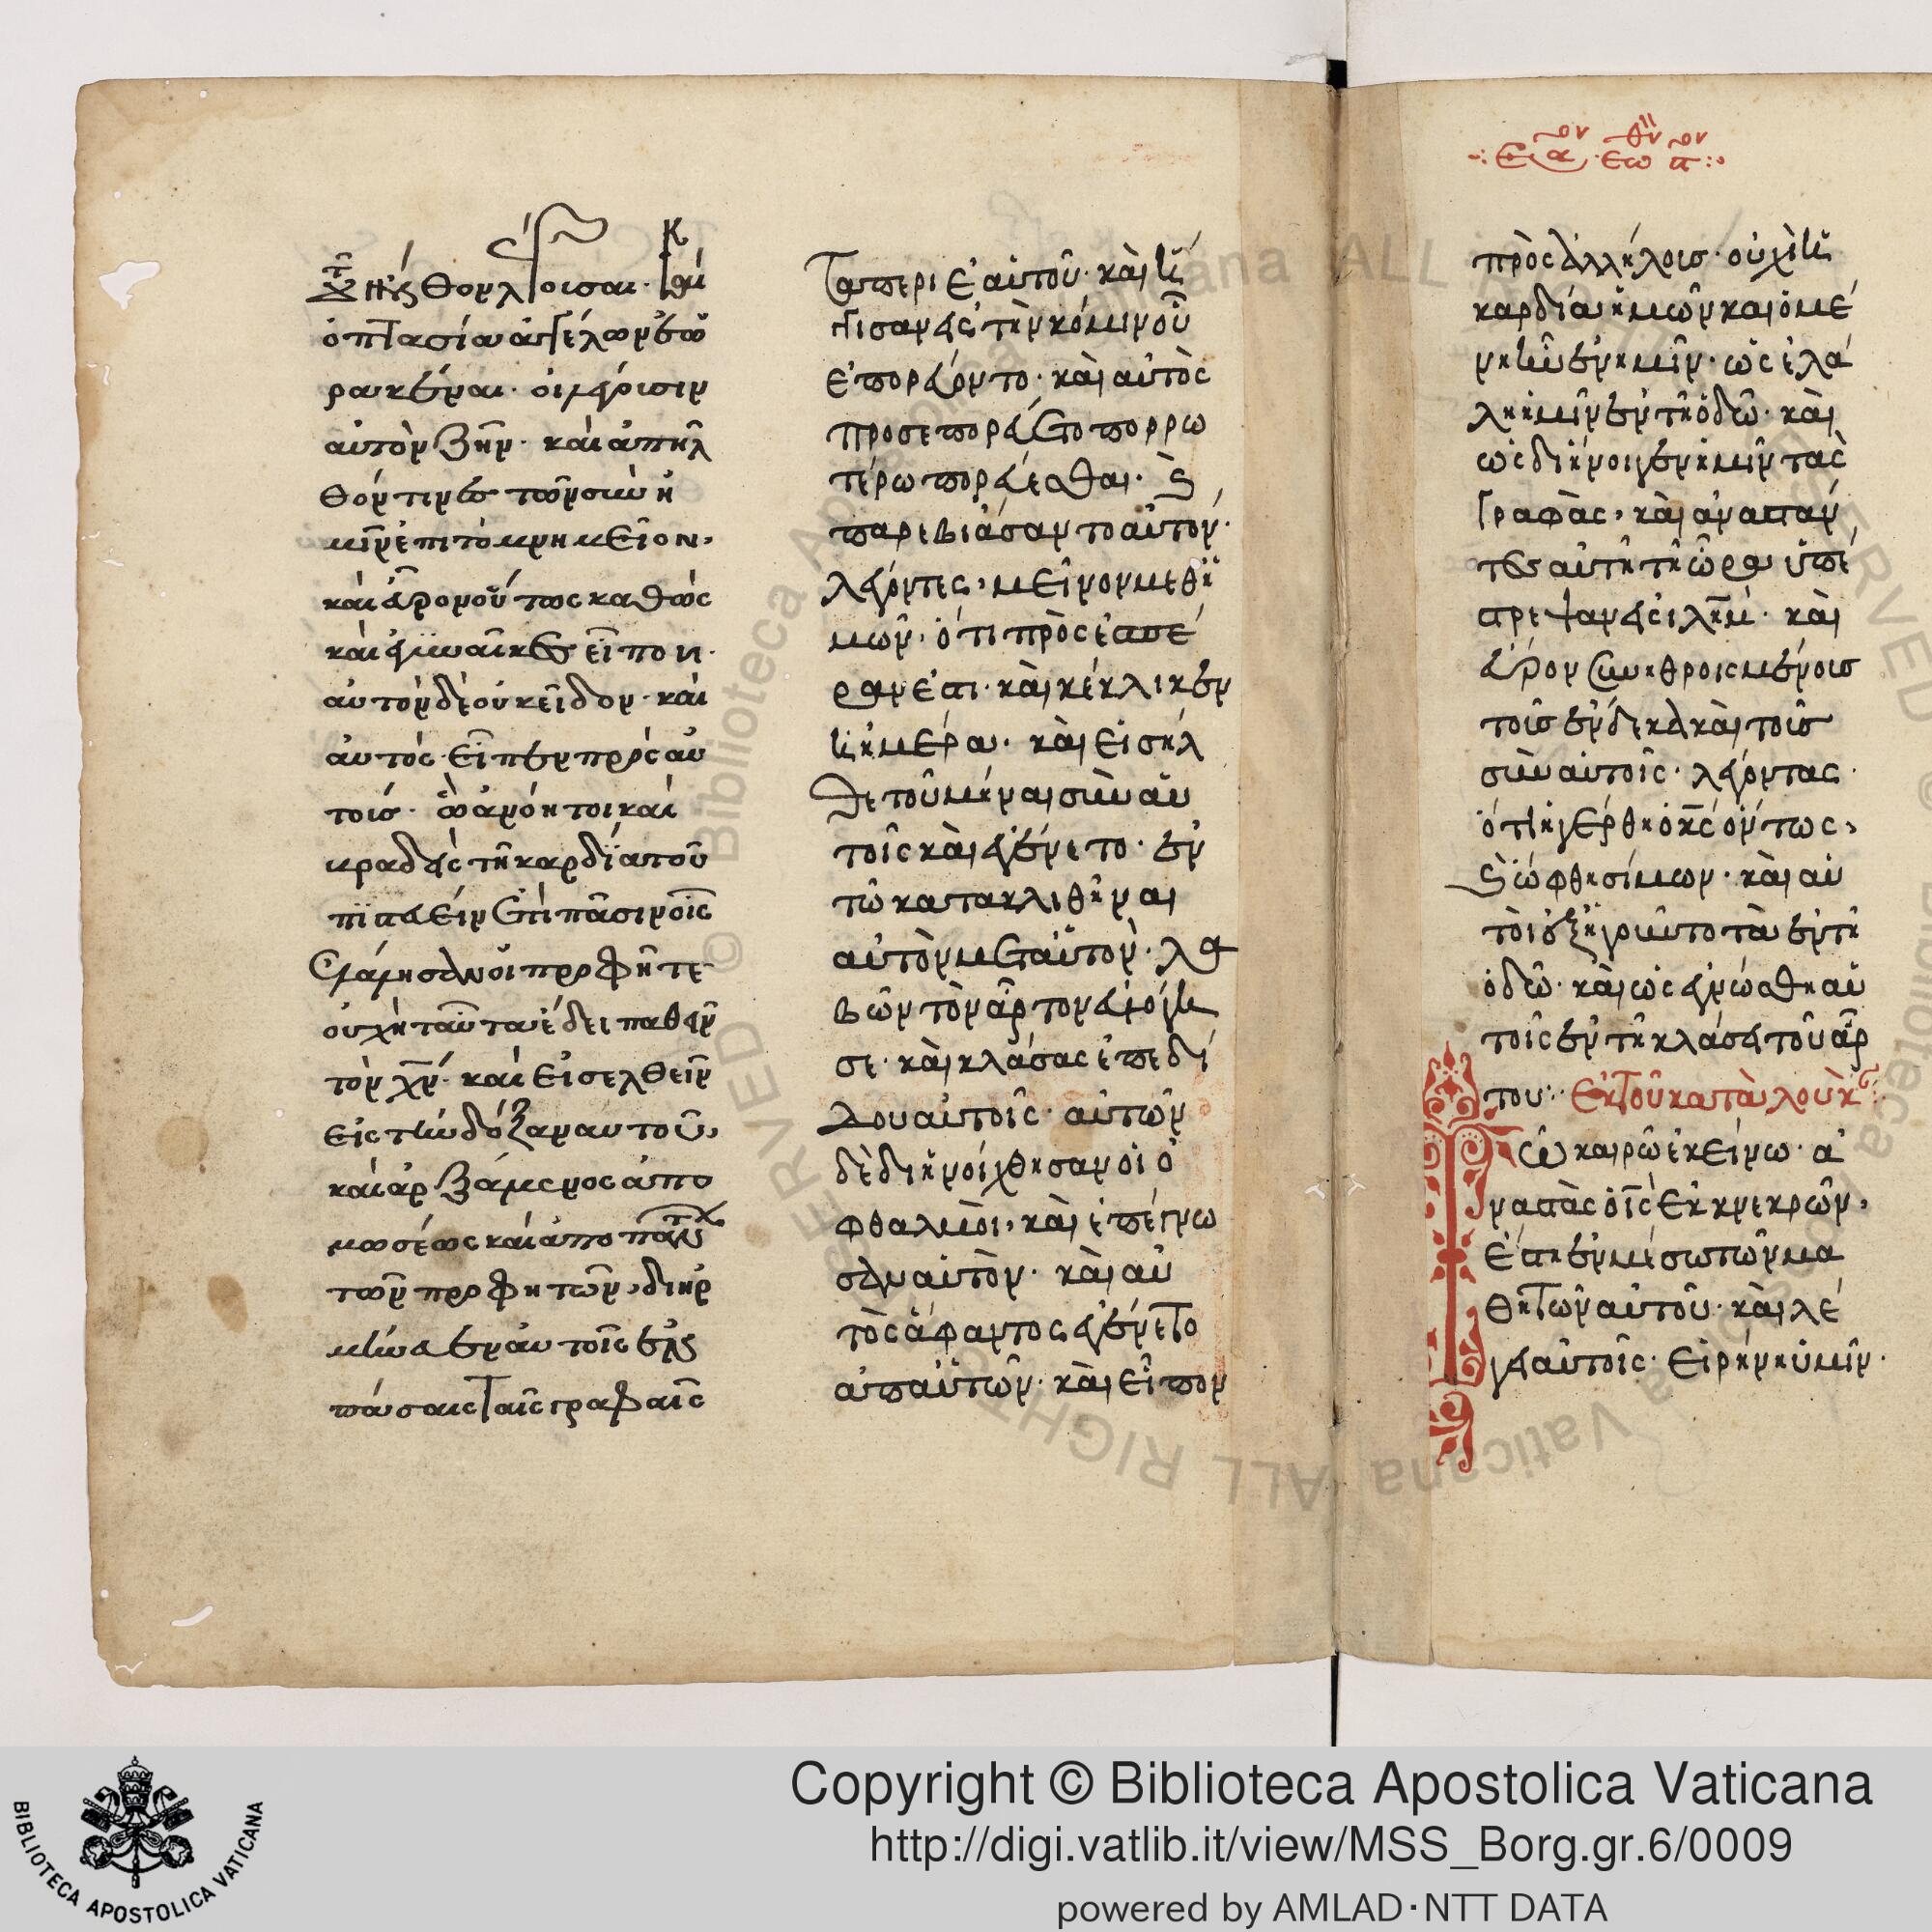 ὀπτασίαν ἀγγέλων ἑω
ρακέναι· οἳ λέγουσιν
αὐτὸν ζῆν· καὶ ἀπῆλ
θόν τινες τῶν σὺν ἡ
μῖν ἐπὶ τὸ μνημεῖον,
καὶ εὗρον οὕτως καθὼς
καὶ γυναῖκες εἶπον·
αὐτὸν δὲ οὐκ εἶδον· καὶ
αὐτὸς εἶπεν πρὸς αὐ
τοὺς· ὦ ἀνόητοι καὶ
βραδεῖς τῇ καρδίᾳ τοῦ
πιστεύειν ἐπὶ πᾶσιν οἷς
ἐλάλησαν οἱ προφῆτε
οὐχὴ ταῦτα ἔδει παθεῖν
τὸν χν· καὶ εἰσελθεῖν
εἰς τὴν δόξαν αὐτοῦ,
καὶ ἀρξάμενος ἀπὸ
μωσέως καὶ ἀπὸ πάντων
τῶν προφητῶν, διηρ
μήνευεν αὐτοῖς ἐν
πάσαις ταῖς γραφαῖς
τὰ περὶ ἑαυτοῦ· καὶ ἤγ
γισαν εἰς τὴν κώμην οὗ
ἐπορεύοντο· καὶ αὐτὸς
προσεποιεῖτο πορρω
τέρω πορεύεσθαι· καὶ
παρεβιάσαντο αὐτὸν·
λέγοντες, μεῖνον μεθ' ἡ
μῶν· ὅτι πρὸς ἑσπέ
ραν ἐστι· καὶ κέκλικεν
ἡ ἡμέρα· καὶ εἰσῆλ
θε τοῦ μεῖναι σὺν αὐ
τοῖς καὶ ἐγένετο· ἐν
τῶ κατακλιθῆναι
αὐτὸν μετ' αὐτῶν· λα
βὼν τὸν ἄρτον εὐλόγη
σε· καὶ κλάσας ἐπεδί
δου αὐτοῖς· αὐτῶν
δὲ διηνοίχθησαν οἱ ὀ
φθαλμοὶ, καὶ ἐπέγνω
σαν αὐτὸν· καὶ αὐ
τὸς ἄφαντος ἐγένετο
ἀπ' αὐτῶν· καὶ εἶπον
πρὸς ἀλλήλους· οὐχὶ ἡ
καρδία ἡμῶν καιομέ
νη ἦν ἐν ἡμῖν· ὡς ἐλά
λει ἡμῖν ἐν τῇ ὁδῶ· καὶ
ὡς διήνοιγεν ἡμῖν τὰς
γραφὰς, καὶ ἀναστάν
τες αὐτῇ τῇ ὥρᾳ ὑπέ
στρεψαν εἰς ιλημ· καὶ
εὗρον συνηθροισμένους
τοὺς ἕνδεκα καὶ τοὺς
σὺν αὐτοῖς· λέγοντας·
ὅτι ἠγέρθη ὁ κς ὄντως,
καὶ ὤφθη σίμωνι· καὶ αὐ
τοὶ ἐξηγοῦντο τὰ ἐν τῇ
ὁδῶ· καὶ ὡς ἐγνώσθη αὐ
τοῖς ἐν τῇ κλάσει τοῦ ἄρ
του·· ἐκ τοῦ κατὰ λουκ
Τῶ καιρῶ ἐκείνω· ἀ
ναστὰς ὁ ις ἐκ νεκρῶν,
ἔστη ἐν μέσω τῶν μα
θητῶν αὐτοῦ· καὶ λέ
γει αὐτοῖς· εἰρήνη ὑμῖν·
Copyright © Biblioteca Apostolica Vaticana
http://digi.vatlib.it/view/MSS_Borg.gr.6/0009
powered by AMLAD·NTT DATA
BIBLIOTECA APOSTOLICA VATICANA